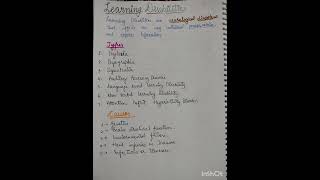 Learning Disabilities
Learning Disabilities are neurological disorders
that affects
and
Types
1. Dyslexia
2. Dysgraphia
3. Dyscalculia
4. Auditory Processing Disorder
5. Language based Learning Disability
6. Non Verbal Learning Disability
7. Attention Deficit Hyperactivity Disorder
Causes
Genetics
Brain structural function
Environmental factors
Head injuries or Trauma
Infections or Illnesses
InShOt